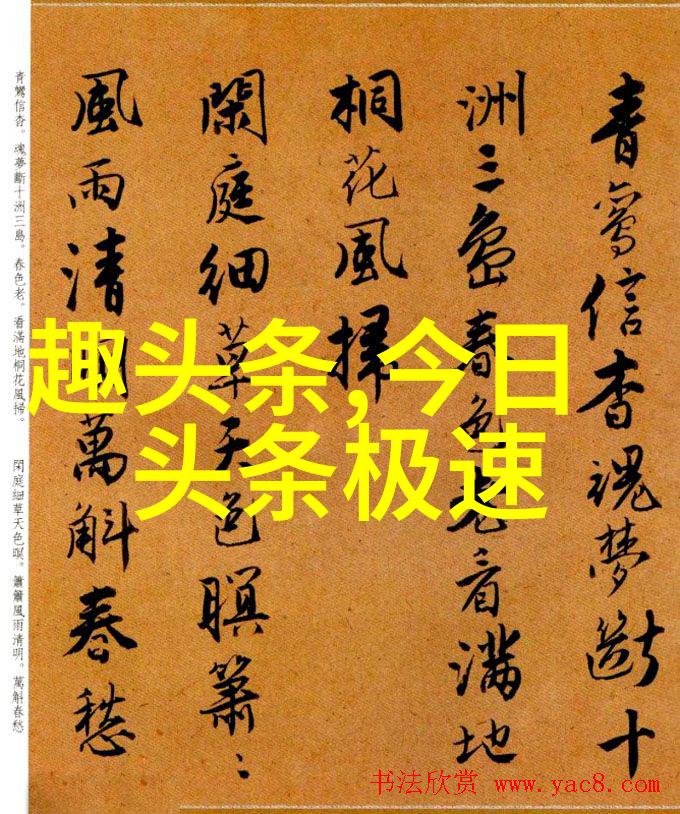 青鸞信杳魂夢斷十
洲三島春色老看滿地
桐花風掃
閑庭細草天色暝簫〻
風雨清明萬斛春愁
青鸞信杳。魂夢斷十洲三島。春色老。看滿地桐花風掃。 閑庭細草天色暝。簫簫風雨清明。萬斛春愁
趣头条,今日
头条极速
书法欣赏 www.yac8.com